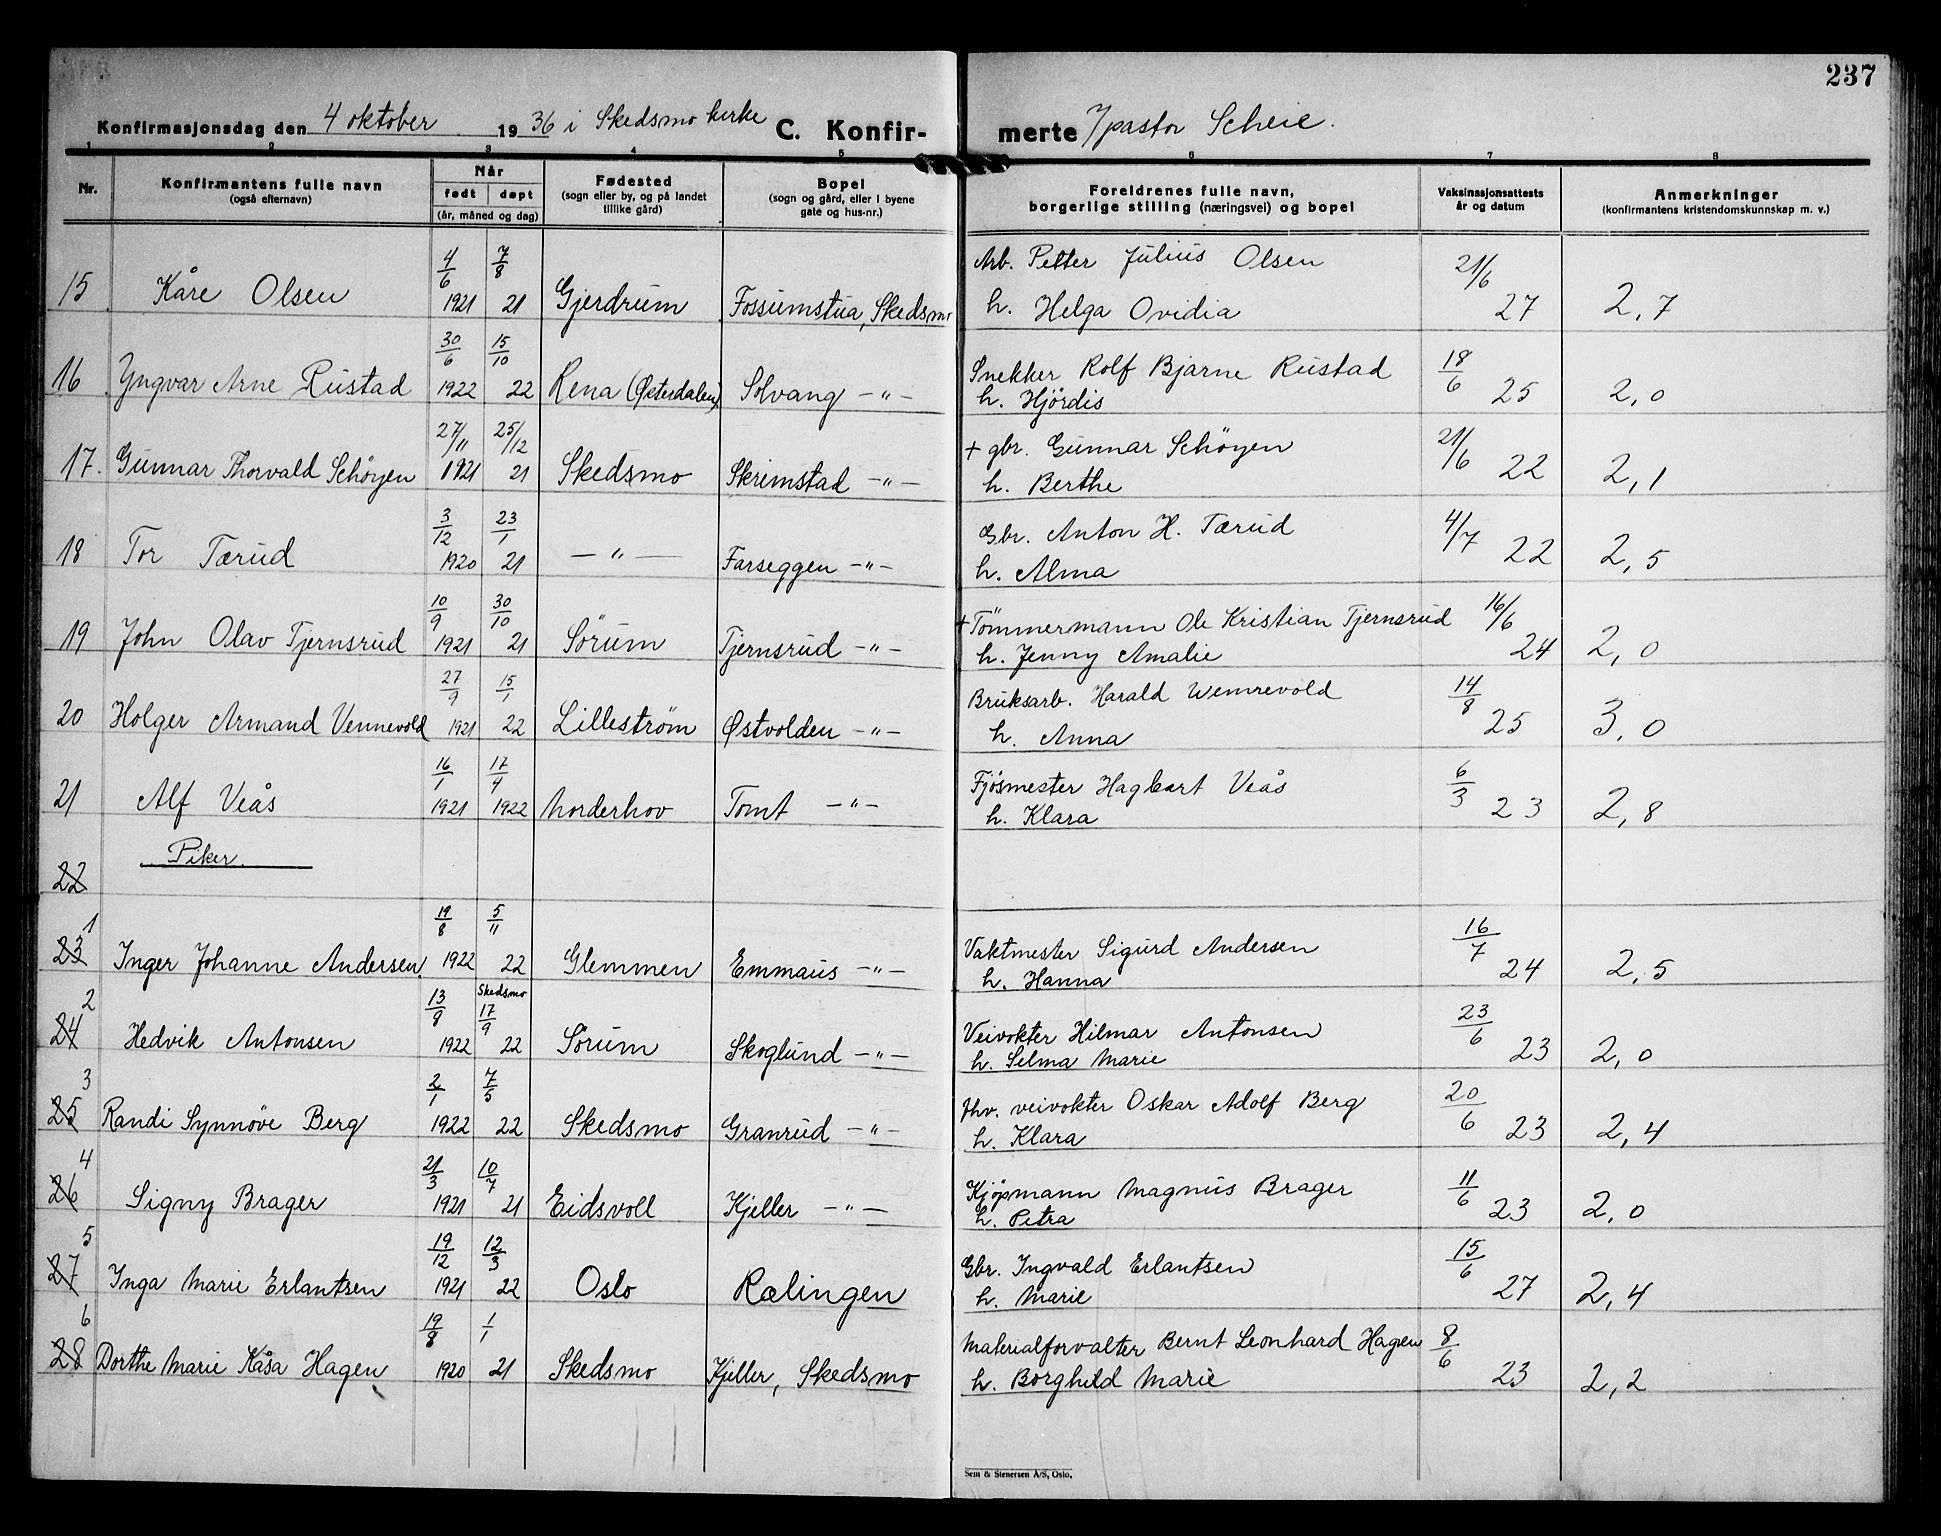 237
Konfirmasjonsdag den 4 oktober 1936 i Skedsmo kirke C. Konfir- merte /pastor Scheie.
1 2 3 4 5 6 7 8
Nr. Konfirmantens fulle navn (også efternavn) Når født døpt (år, måned og dag) Fødested (sogn eller by, og på landet tillike gård) Bopel (sogn og gård, eller i byene gate og hus-nr.) Foreldrenes fulle navn, borgerlige stilling (næringsvei) og bopel Vaksinasjonsattests år og datum Anmerkninger (konfirmantens kristendomskunnskap m. v.)
4/6 7/8 Arb. Petter Julius Olsen 21/6
15 Kåre Olsen 1921 21 Gjerdrum Fossumstua, Skedsmo h. Helga Ovidia 27 2,7
30/6 15/10 Snekker Rolf Bjarne Rustad 18/6
16 Yngvar Arne Rustad 1922 22 Rena (Østerdalen) Solvang -"- h. Hjördis 25 2,0
27/11 25/12 + gbr. Gunnar Schöyen 21/6
17. Gunnar Thorvald Schöyen 1921 21 Skedsmo Skrimstad -"- h. Berthe 22 2,1
3/12 23/1 Gbr. Anton H. Tærud 4/7
18 Tor Tærud 1920 21 -"- Farseggen -"- h. Alma 22 2,5
10/9 30/10 + Tömmermann Ole Kristian Tjernsrud 16/6
19 John Olav Tjernsrud 1921 21 Sörum Tjernsrud -"- h. Jenny Amalie 24 2,0
27/9 15/1 Bruksarb. Harald Wennevold 14/8
20 Holger Armand Vennevold 1921 22 Lilleström Østvolden -"- h. Anna 25 3,0
16/1 17/4 Fjøsmester Hagbart Veås 6/3
21 Alf Veås 1921 1922 Norderhov Tomt -"- h. Klara 23 2,8
Piker.
22
1 19/8 5/11 Vaktmester Sigurd Andersen 16/7
23 Inger Johanne Andersen 1922 22 Glemmen Emmaus -"- h. Hanna 24 2,5
2 13/8 Skedsmo 17/9 Veivokter Hilmar Antonsen 23/6
24 Hedvik Antonsen 1922 22 Sörum Skoglund -"- h. Selma Marie 23 2,0
3 2/1 7/5 Fhv. veivokter Oskar Adolf Berg 20/6
25 Randi Synnöve Berg 1922 22 Skedsmo Granrud -"- h. Klara 23 2,4
4 21/3 10/7 Kjøpmann Magnus Brager 11/6
26 Signy Brager 1921 21 Eidsvoll Kjeller -"- h. Petra 23 2,0
5 19/12 12/3 Gbr. Ingvald Erlantsen 15/6
27 Inga Marie Erlantsen 1921 22 Oslo Rælingen h. Marie 27 2,4
6 19/8 1/1 Materialforvalter Bernt Leonhard Hagen 8/6
28 Dorthe Marie Kåsa Hagen 1920 21 Skedsmo Kjeller, Skedsmo h. Borghild Marie 23 2,2
Sem & Stenersen A/S, Oslo.